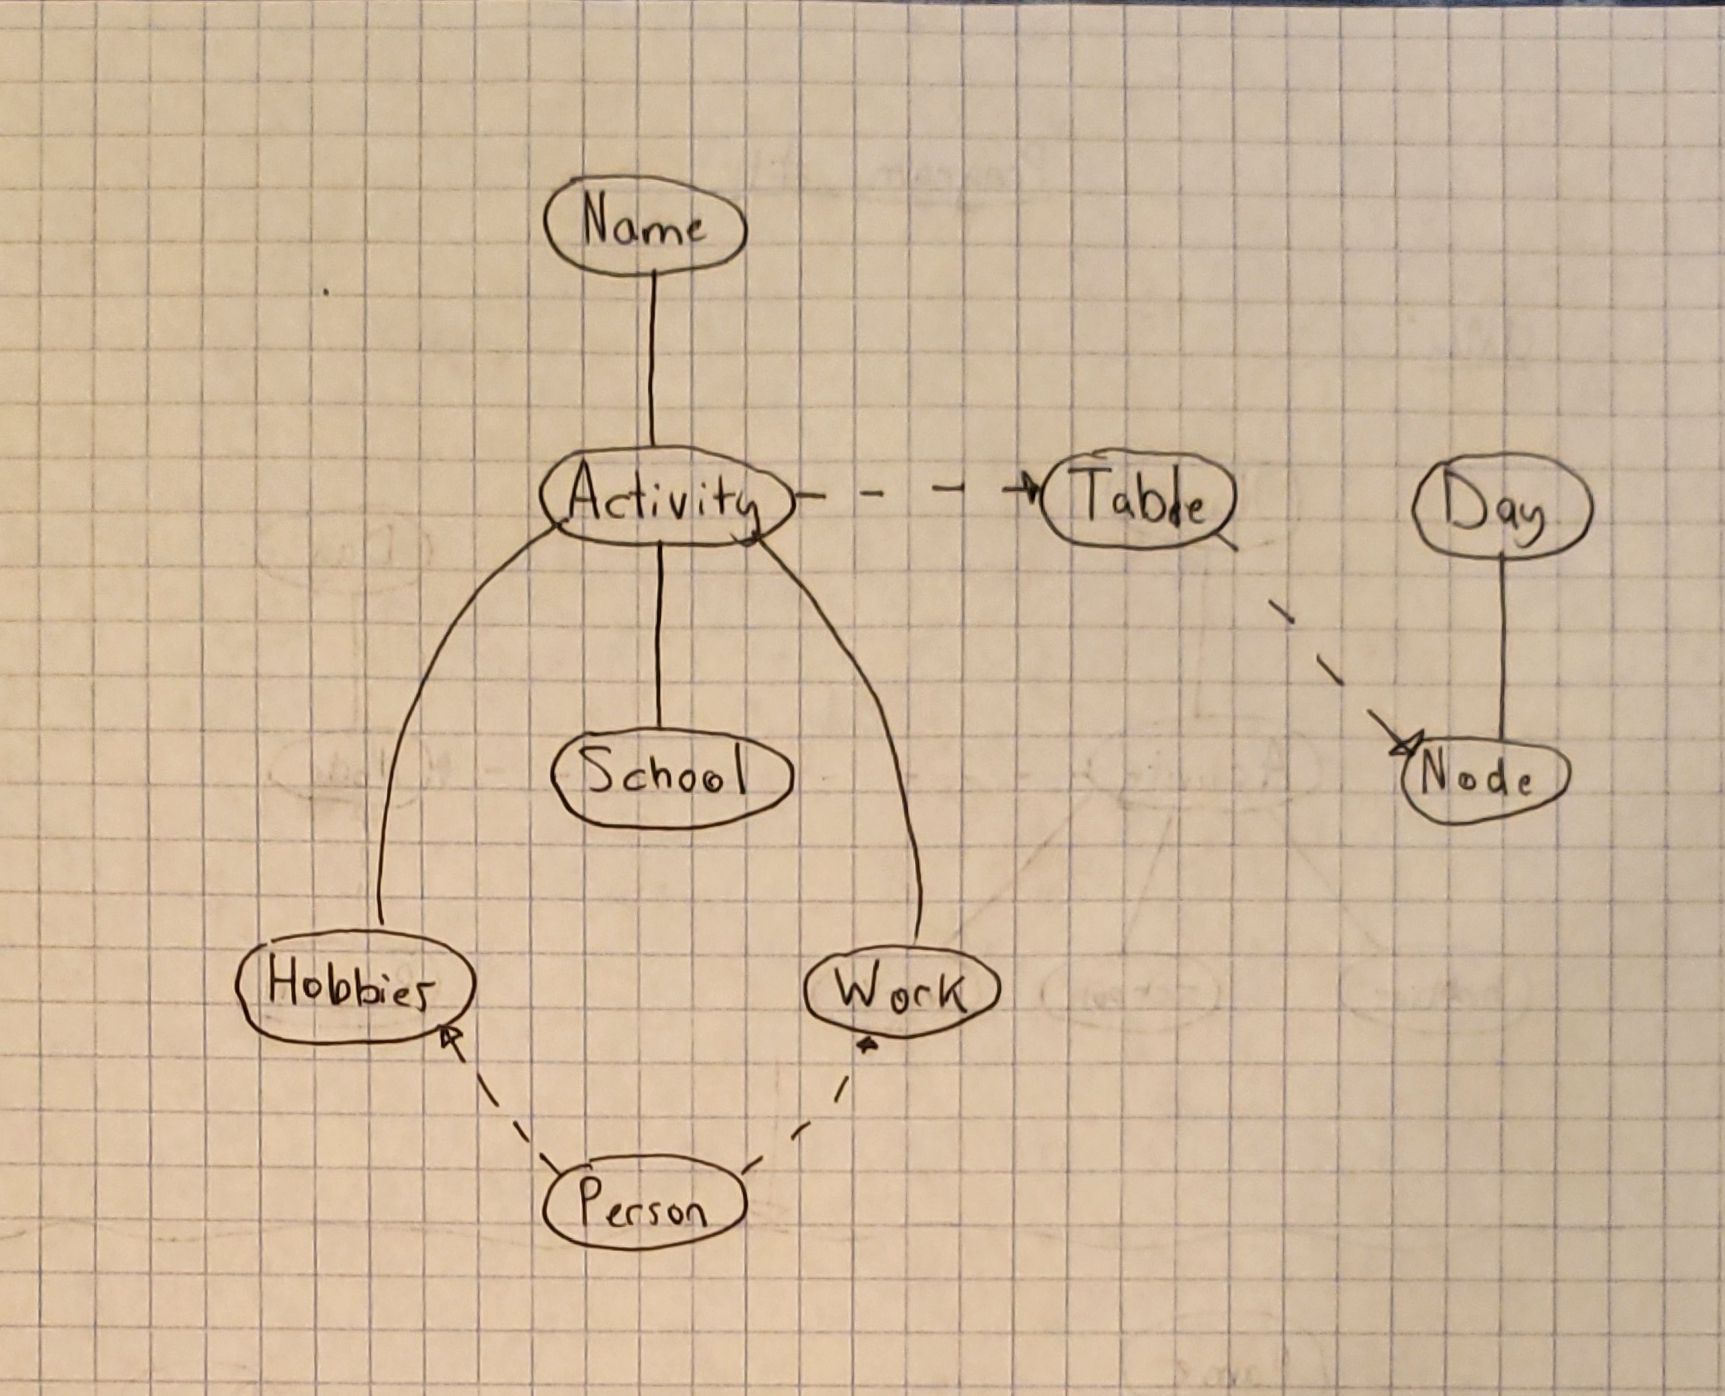 Name
Activity
Table
Day
School
Node
Hobbies
Work
Person